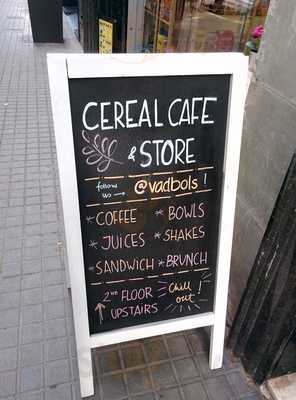 CEREAL CAFE
& STORE
follow us → @vadbols !
* COFFEE * BOWLS
* JUICES * SHAKES
* SANDWICH * BRUNCH
2ND FLOOR
UPSTAIRS
Chill out!